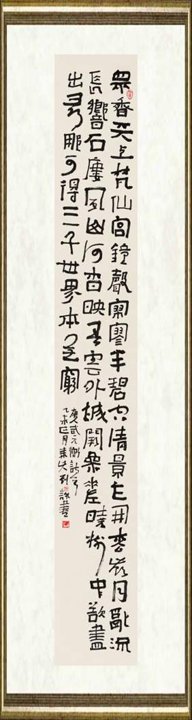 眾香天上梵仙宮鐘聲寥半碧空清景乍開松月亂流
長響石樓風山河杳映春雲外城闕參差曉樹中欲盡
出尋那可得三千世界本无窮
唐武元衡詩
乙未